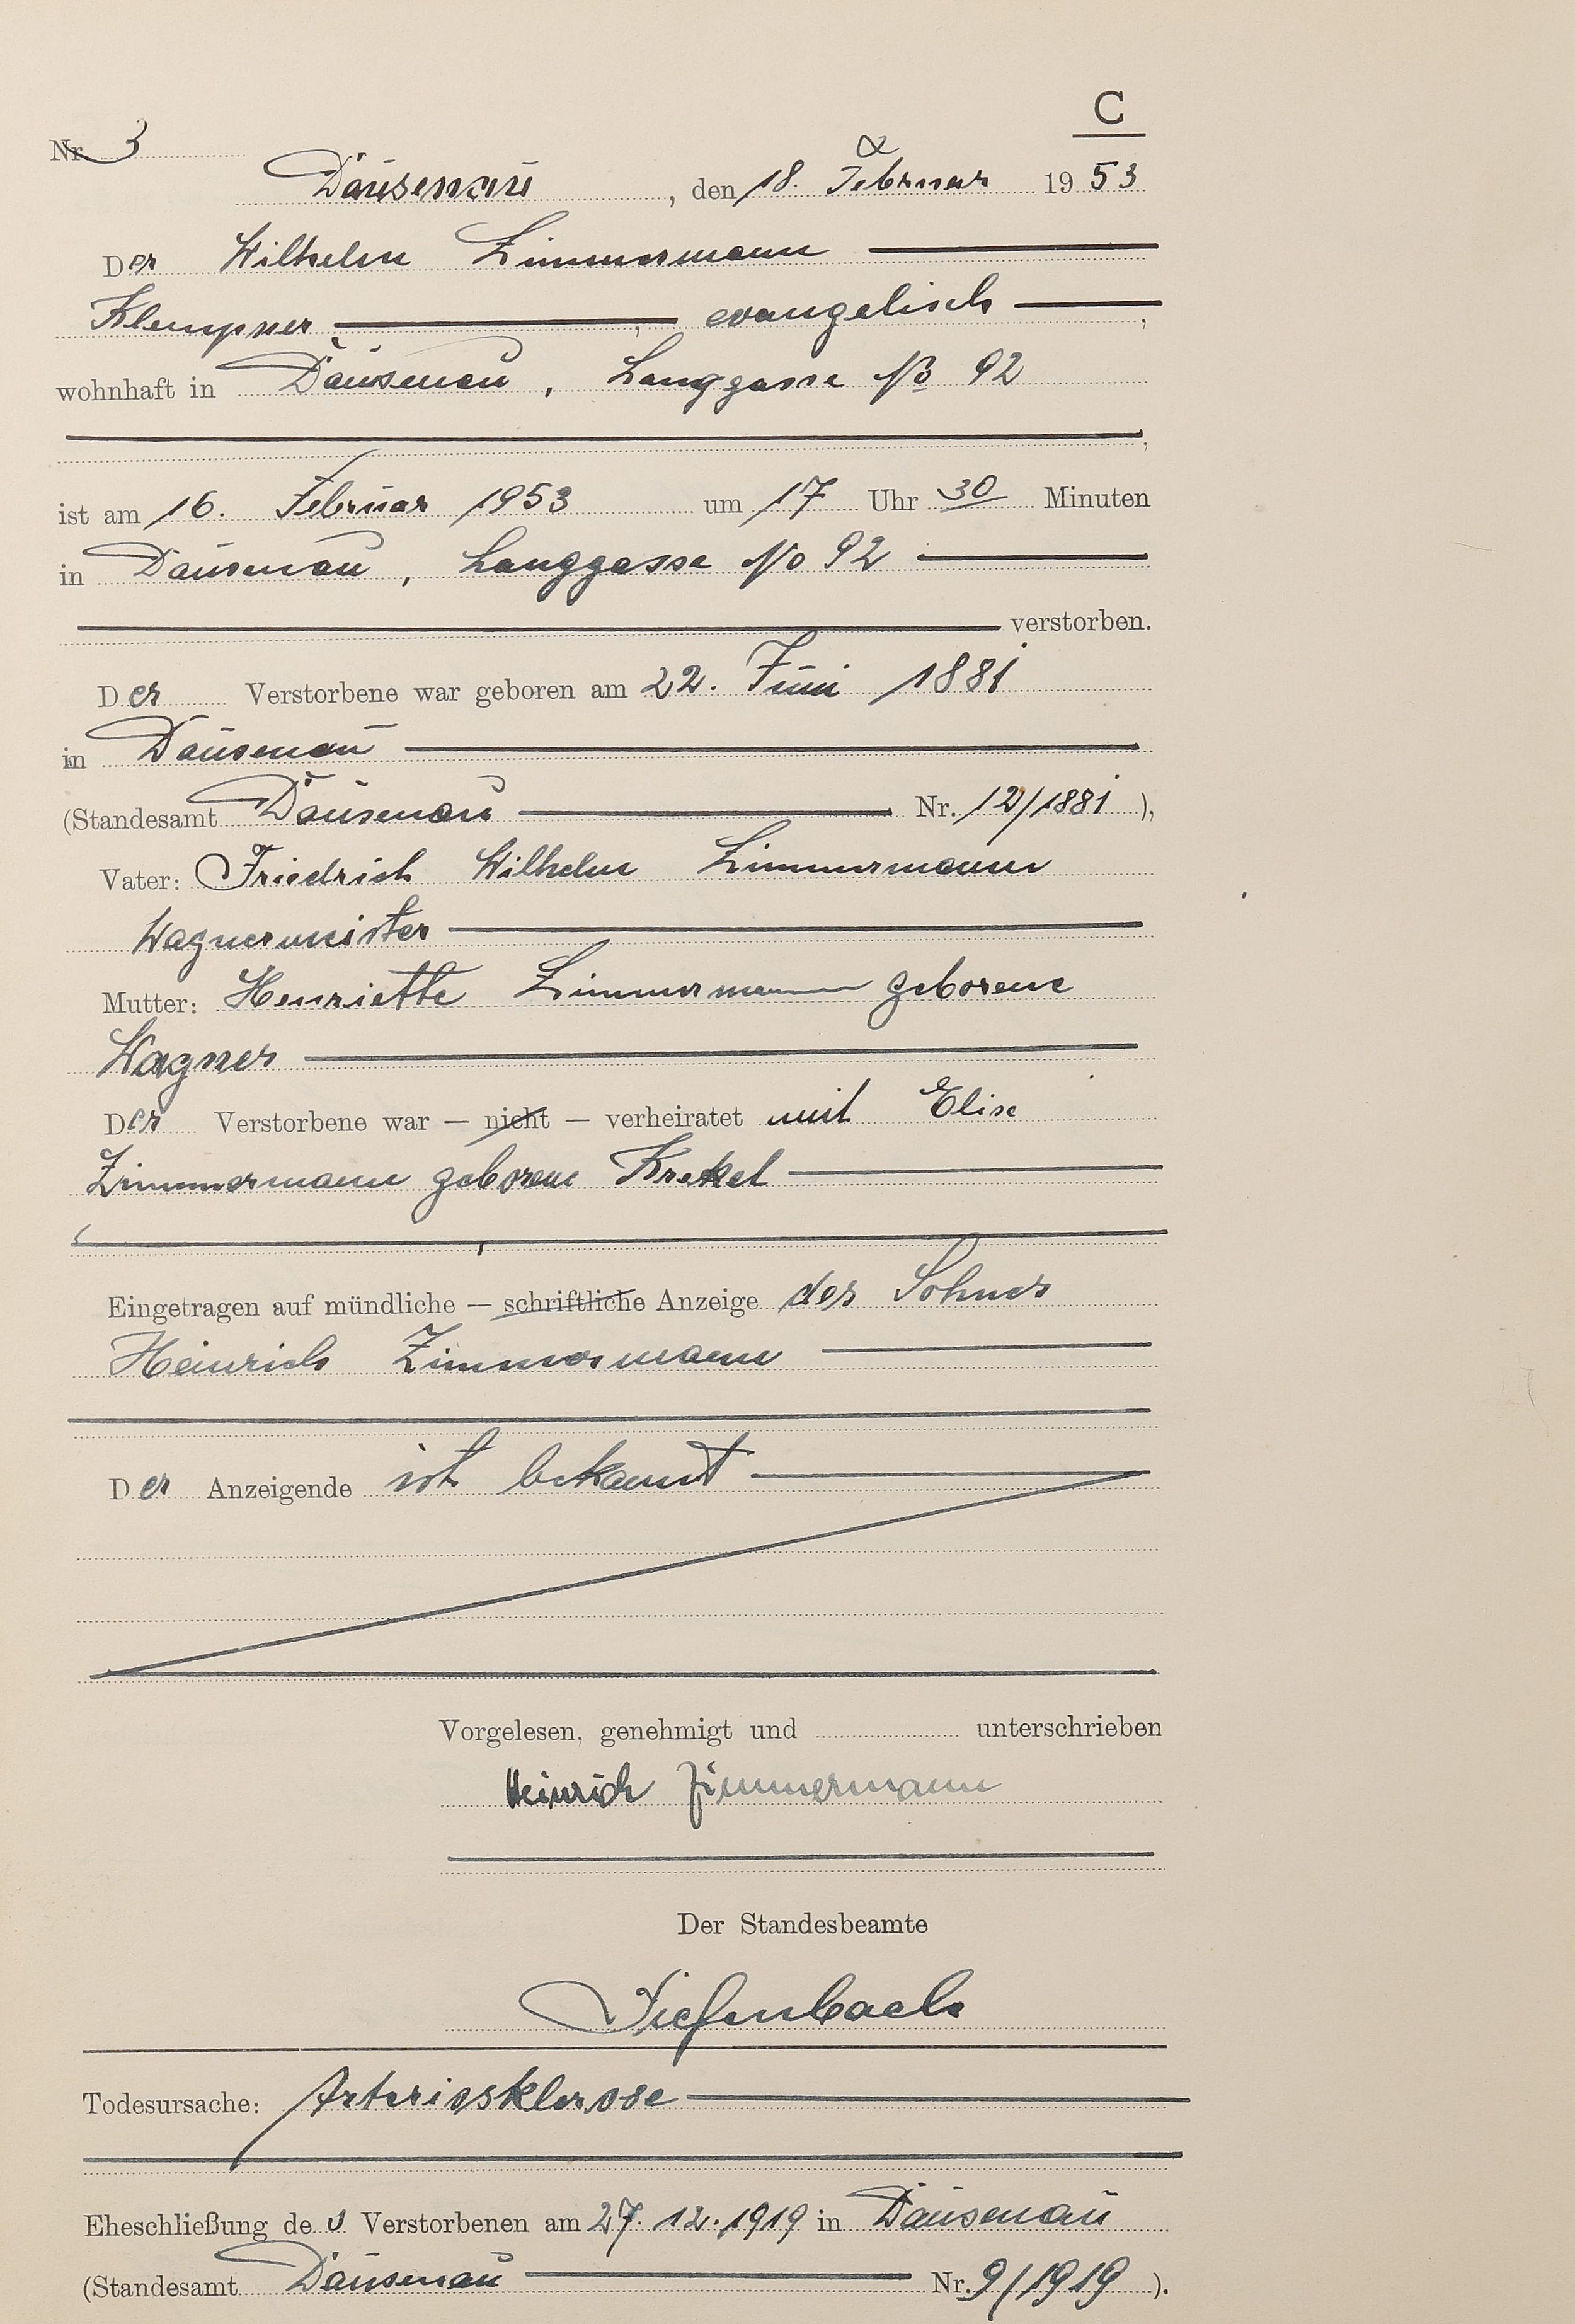 C
Nr. 3
Dausenau, den 18. Februar 1953
Der Wilhelm Zimmermann
Klempner, evangelisch,
wohnhaft in Dausenau, Langgasse No 92
,
ist am 16. Februar 1953 um 17 Uhr 30 Minuten
in Dausenau, Langgasse No 92
verstorben.
Der Verstorbene war geboren am 22. Juni 1881
in Dausenau
(Standesamt Dausenau Nr. 12/1881),
Vater: Friedrich Wilhelm Zimmermann
Wagnermeister
Mutter: Henriette Zimmermann geborene
Wagner
Der Verstorbene war — nicht — verheiratet mit Elise
Zimmermann geborene Krekel
Eingetragen auf mündliche — schriftliche Anzeige des Sohnes
Heinrich Zimmermann
Der Anzeigende ist bekannt
Vorgelesen, genehmigt und unterschrieben
Heinrich Zimmermann
Der Standesbeamte
Tiefenbach
Todesursache: Arteriosklerose
Eheschließung des Verstorbenen am 27. 12. 1919 in Dausenau
(Standesamt Dausenau Nr. 9/1919).